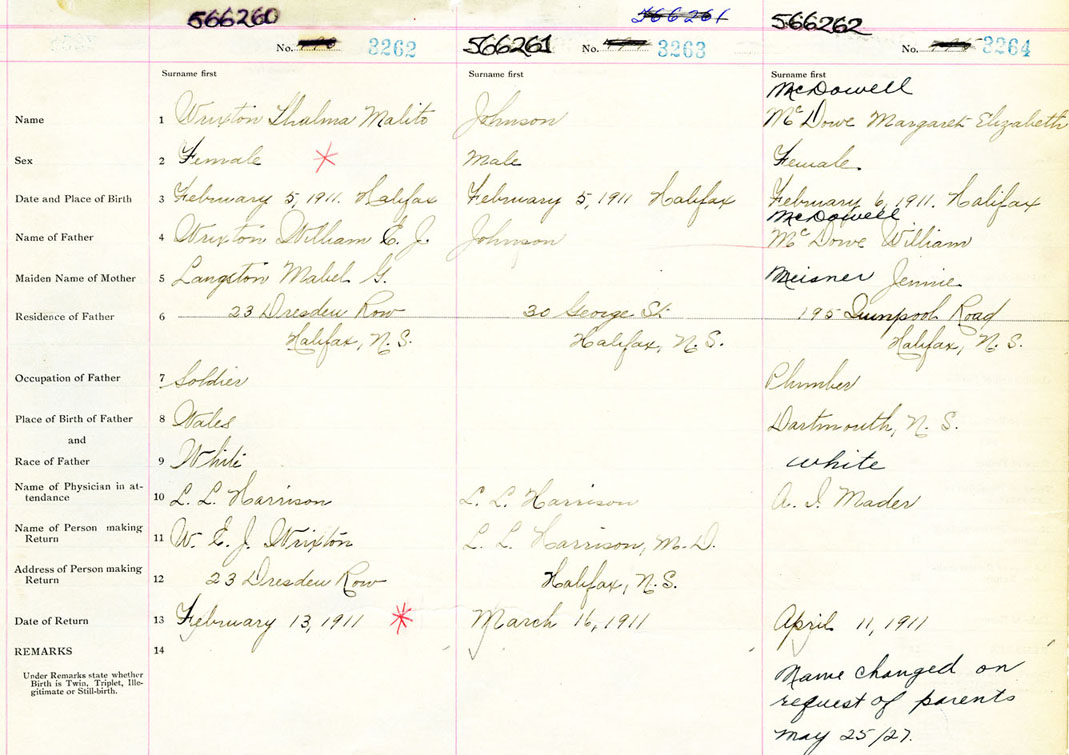 566260
566261
566262
No. 3262
566261
No. 3263
No. 3264
Surname first
Surname first
Surname first
McDowell
Name 1 Wrixton Thalma Malito
Johnson
McDowe Margaret Elizabeth
Sex 2 Female
Male
Female
Date and Place of Birth 3 February 5, 1911. Halifax
February 5, 1911 Halifax
February 6, 1911. Halifax
McDowell
Name of Father 4 Wrixton William E. J.
Johnson
McDowe William
Maiden Name of Mother 5 Langston Mabel G.
Meisner Jennie
Residence of Father 6 23 Dresden Row
30 George St.
195 Quinpool Road
Halifax, N. S.
Halifax, N. S.
Halifax, N. S.
Occupation of Father 7 Soldier
Plumber
Place of Birth of Father 8 Wales
Dartmouth, N. S.
and
Race of Father 9 White
White
Name of Physician in at-
tendance 10 L. L. Harrison
L. L. Harrison
A. I. Mader
Name of Person making
Return 11 W. E. J. Wrixton
L. L. Harrison, M. D.
Address of Person making
Return 12 23 Dresden Row
Halifax, N. S.
Date of Return 13 February 13, 1911
March 16, 1911
April 11, 1911
REMARKS 14
Under Remarks state whether
Birth is Twin, Triplet, Ille-
gitimate or Still-birth.
Name changed on
request of parents
May 25/27.